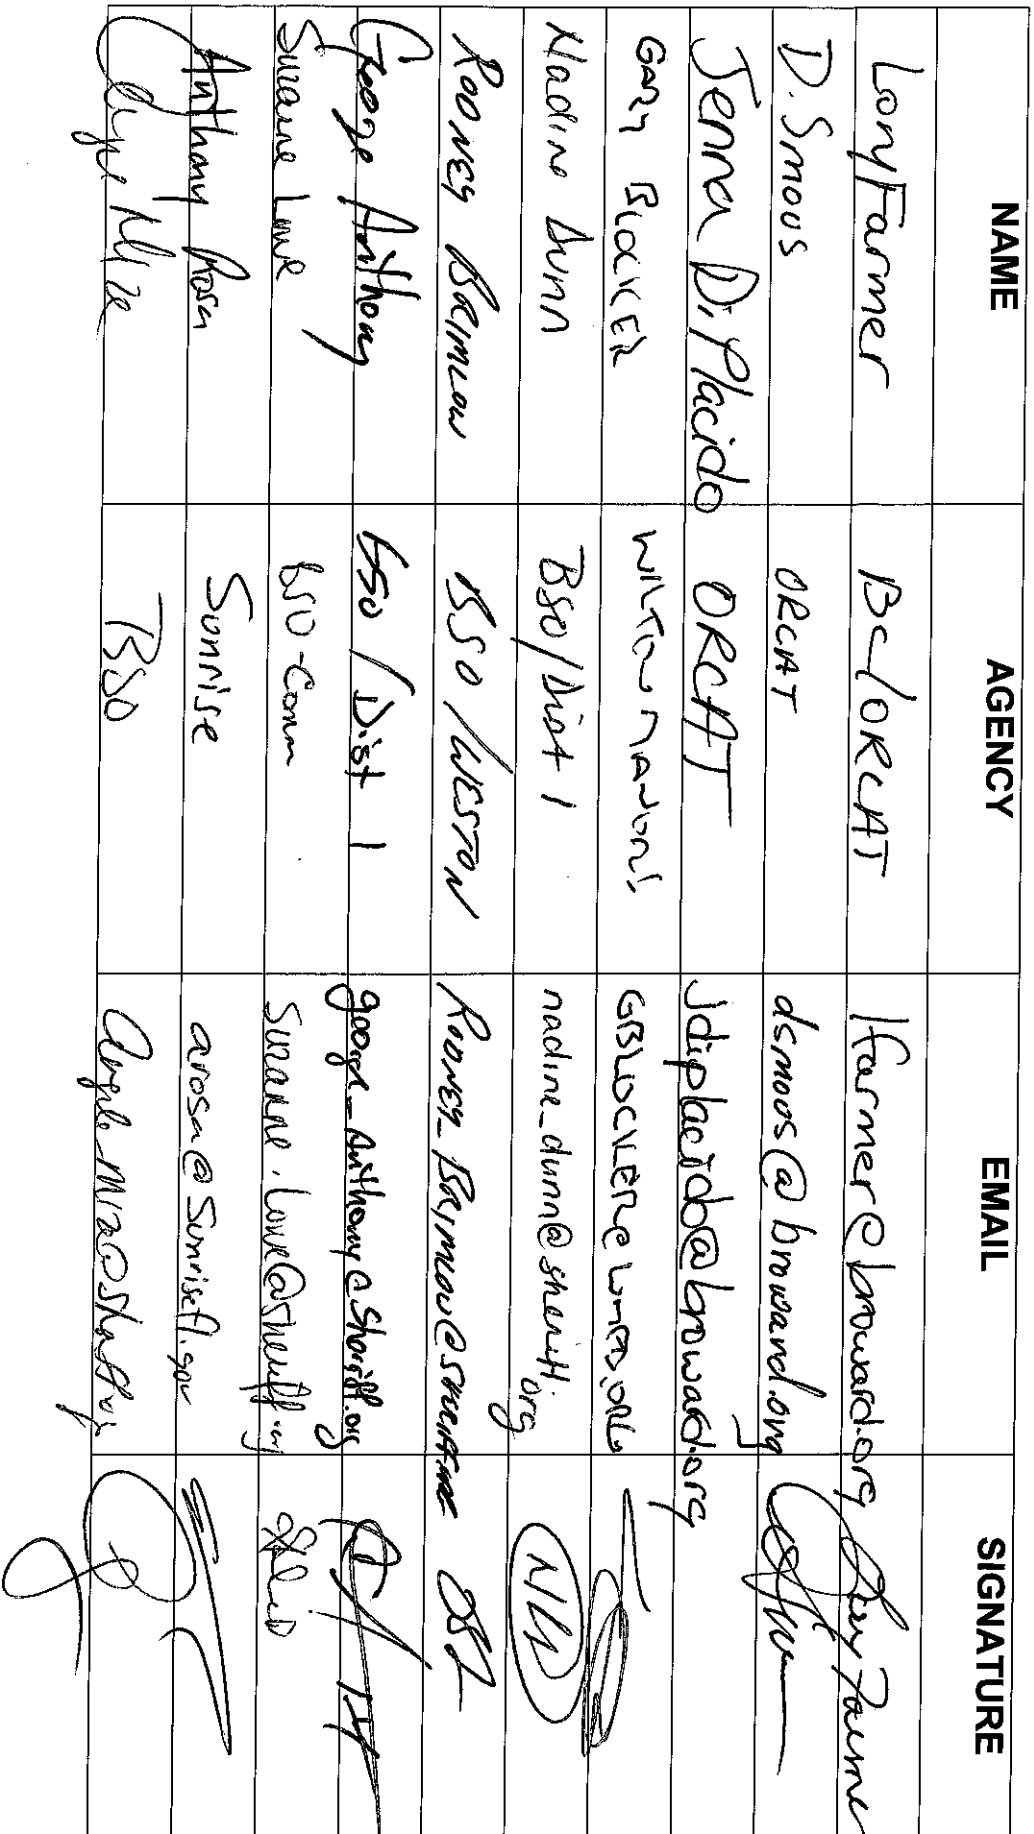 NAME AGENCY EMAIL SIGNATURE
Lory Farmer BC/ORCAT lfarmer@broward.org Lory Farmer
D. Smous ORCAT dsmous@broward.org
Jenna DiPlacido ORCAT Jdiplacido@broward.org
GARY BLOCKER WILTON MANORS GBLOCKER@WMPD.ORG
Nadine Dunn BSO/Dist 1 nadine_dunn@sheriff.org ND
RODNEY BRIMLOW BSO/WESTON RODNEY_BRIMLOW@
George Anthony BSO/Dist 1 george_Anthony@Sheriff.org
Suzanne Lowe BSO-Comm Suzanne.Lowe@sheriff.org
Anthony Rosa Sunrise arosa@Sunrisefl.gov
Mize BSO